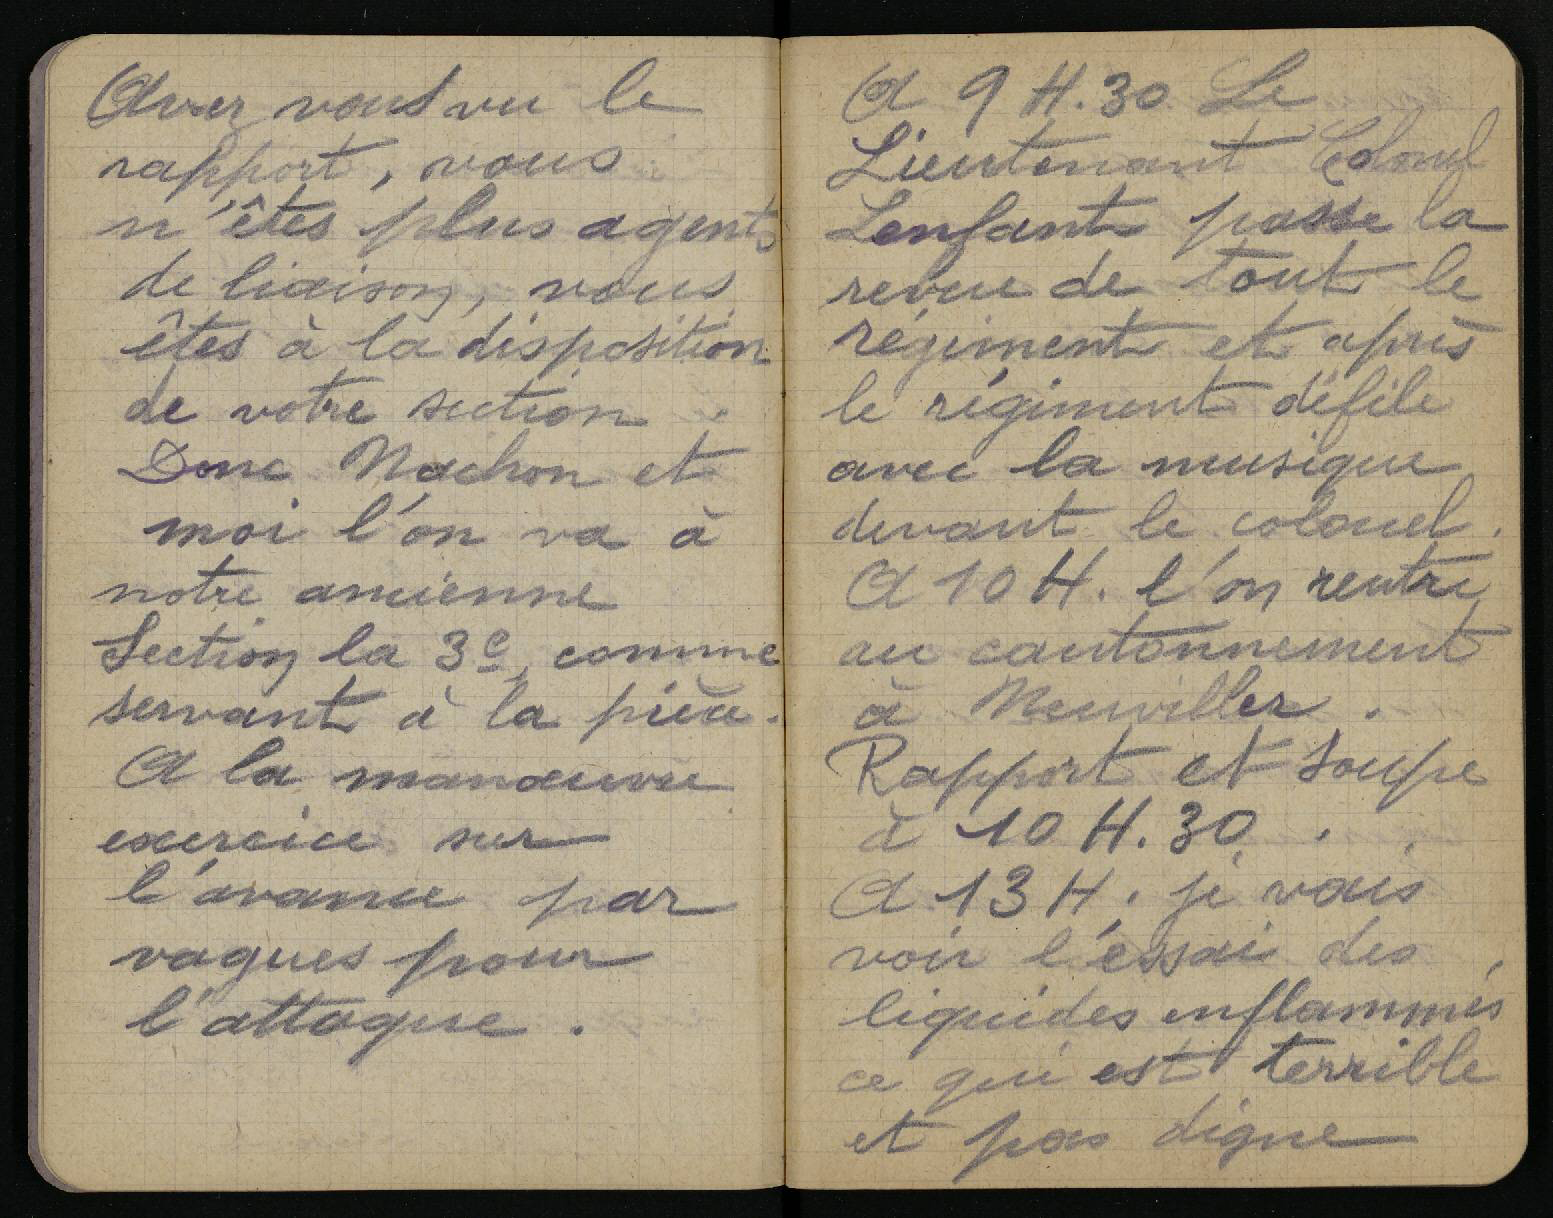 Avez vous vu le
rapport, vous
n'êtes plus agents
de liaison, vous
êtes à la disposition
de votre section
Donc Nachon et
moi l'on va à
notre ancienne
Section la 3e, comme
servant à la pièce.
A la manœuvre
exercice sur
l'avance par
vagues pour
l'attaque.
A 9 H.30 Le
Lieutenant Colonel
Lenfant passe la
revue de tout le
régiment et après
le régiment défile
avec la musique
devant le colonel.
A 10 H. l'on rentre
au cantonnement
à Neuviller.
Rapport et soupe
à 10 H.30.
A 13 H. je vais
voir l'éssai des
liquides enflammés
ce qui est terrible
et pas digne